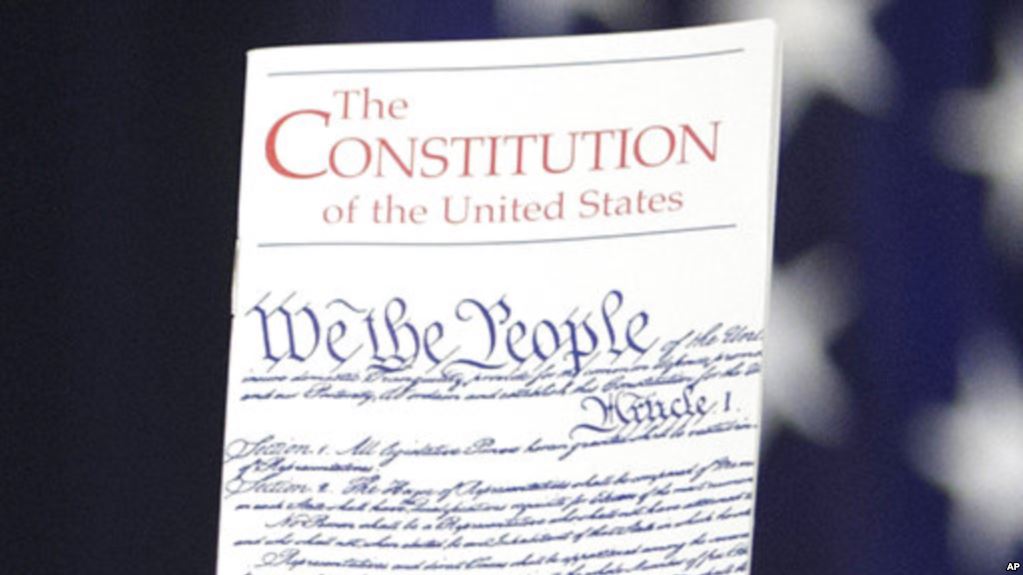 The
CONSTITUTION
of the United States
We the People of the
insure domestic Tranquility, provide for the common defence, promo
and our Posterity, do ordain and establish this Constitution for the
Article. I.
Section. 1. All legislative Powers herein granted shall be vested in
of Representatives.
Section. 2. The House of Representatives shall be composed of Mem
on each State shall have Qualifications requisite for Electors of the most numerous
No Person shall be a Representative who shall not have attained to
and who shall not, when elected, be an Inhabitant of that State in which he shall
Representatives and direct Taxes shall be apportioned among the several
whole Number of free
AP